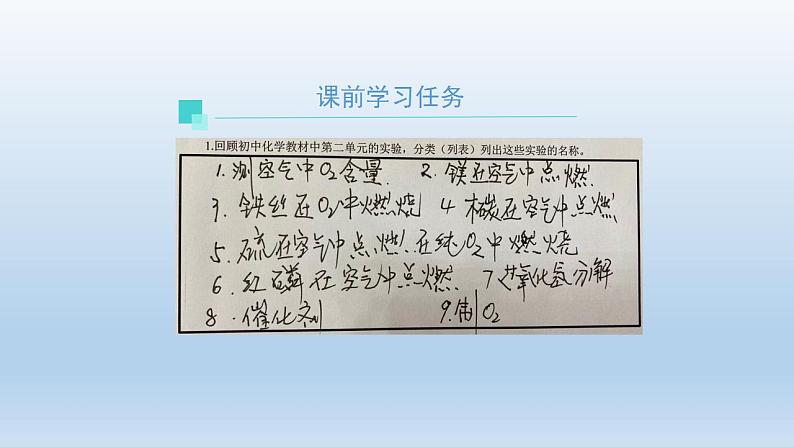 课前学习任务
1.回顾初中化学教材中第二单元的实验，分类（列表）列出这些实验的名称。
1.测空气中O₂含量. 2.镁在空气中点燃.
3.铁丝在O₂中燃烧 4木碳在空气中点燃
5.硫在空气中点燃.在纯O₂中燃烧
6.红磷在空气中点燃. 7过氧化氢分解
8.催化剂 9.制O₂